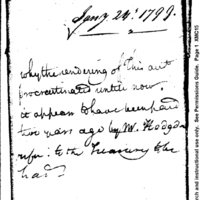 Jany 24: 1799.
why the rendering of this act
procrastinated untill now.
it appears to have been paid
two years ago by Mr. Hodgdn
upn: to the Treasury & he
had
rch and instructional use only. See Permissions Guide. Page 1 XMC15